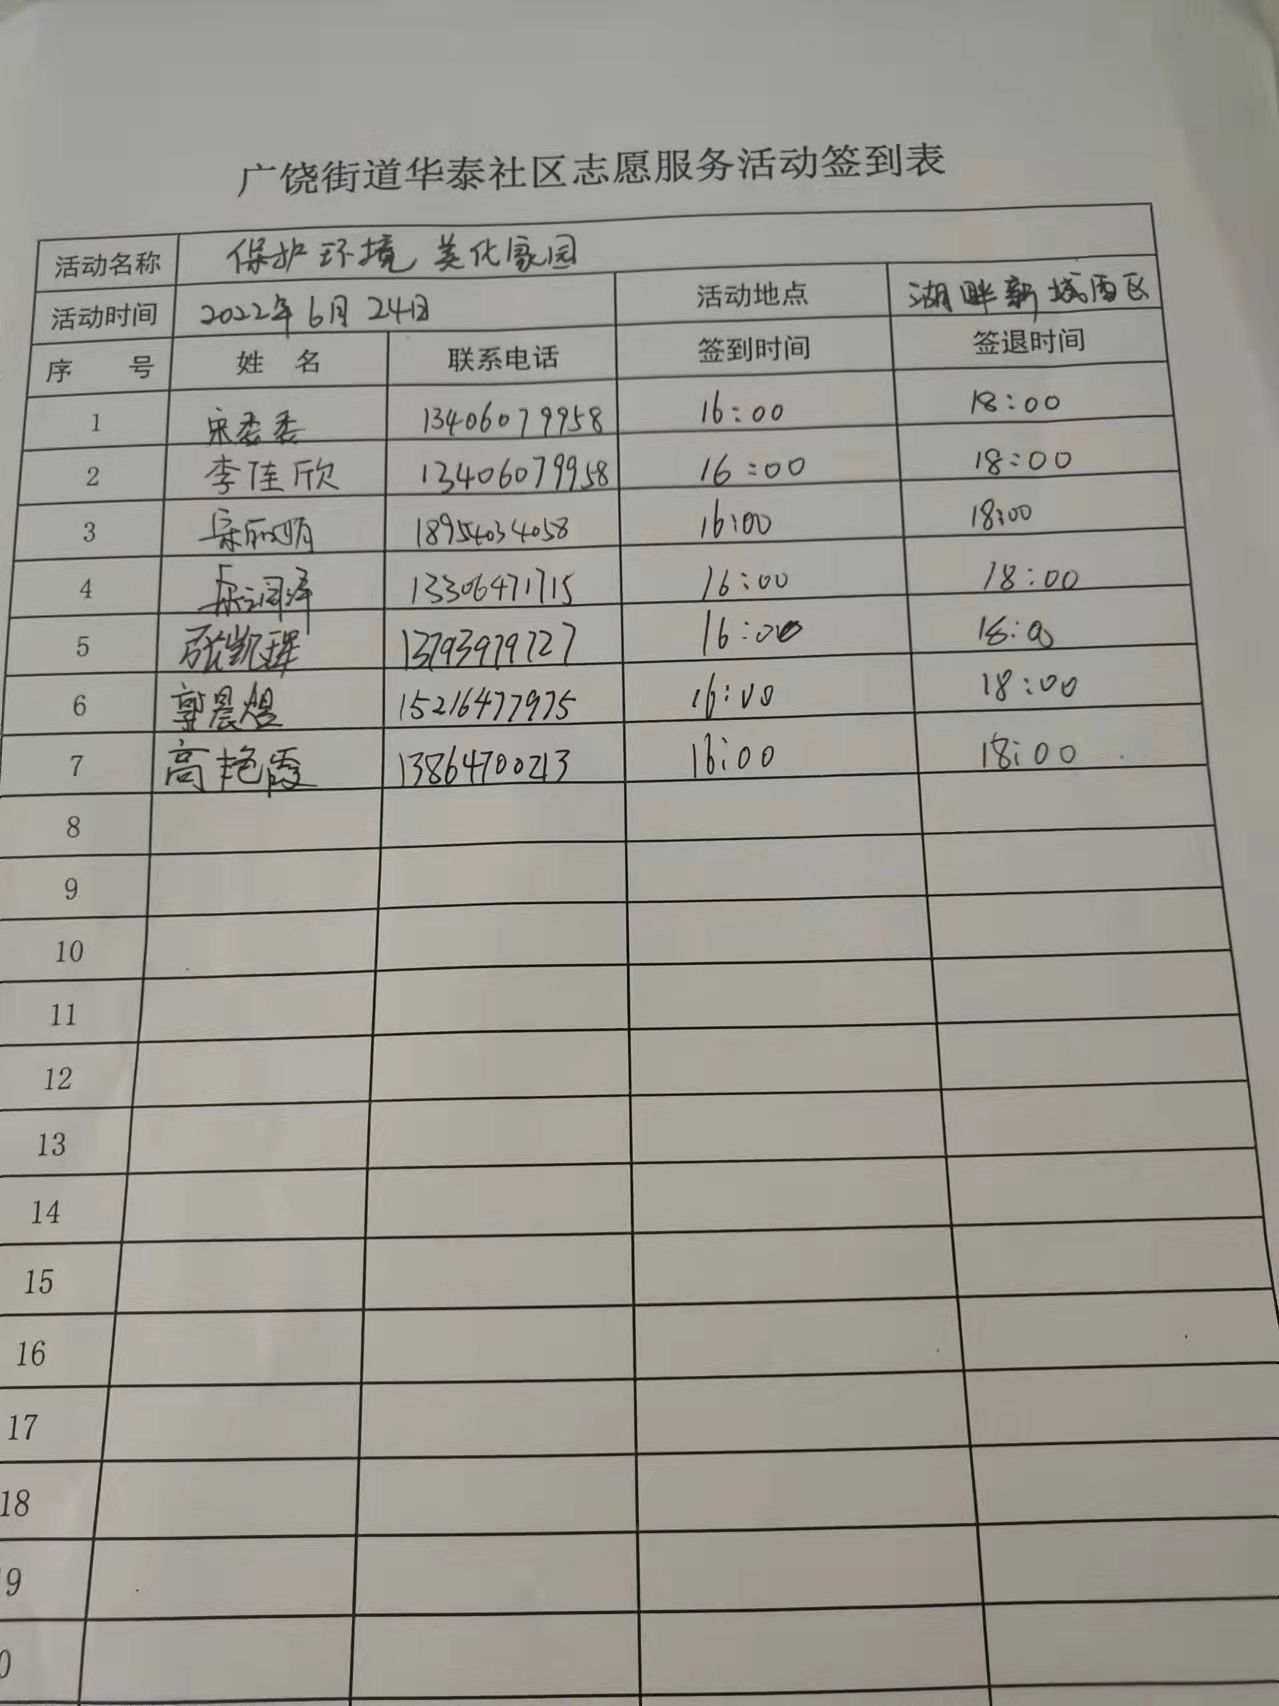 广饶街道华泰社区志愿服务活动签到表
活动名称 保护环境 美化家园
活动时间 2022年6月24日 活动地点 湖畔新城西区
序 号 姓 名 联系电话 签到时间 签退时间
1 宋委委 13406079958 16:00 18:00
2 李佳欣 13406079958 16:00 18:00
3 18954034058 16:00 18:00
4 13306471715 16:00 18:00
5 张凯珲 13793979727 16:00 18:00
6 郭晨煜 15216477975 16:00 18:00
7 高艳霞 13864700213 16:00 18:00
8
9
10
11
12
13
14
15
16
17
18
9
0